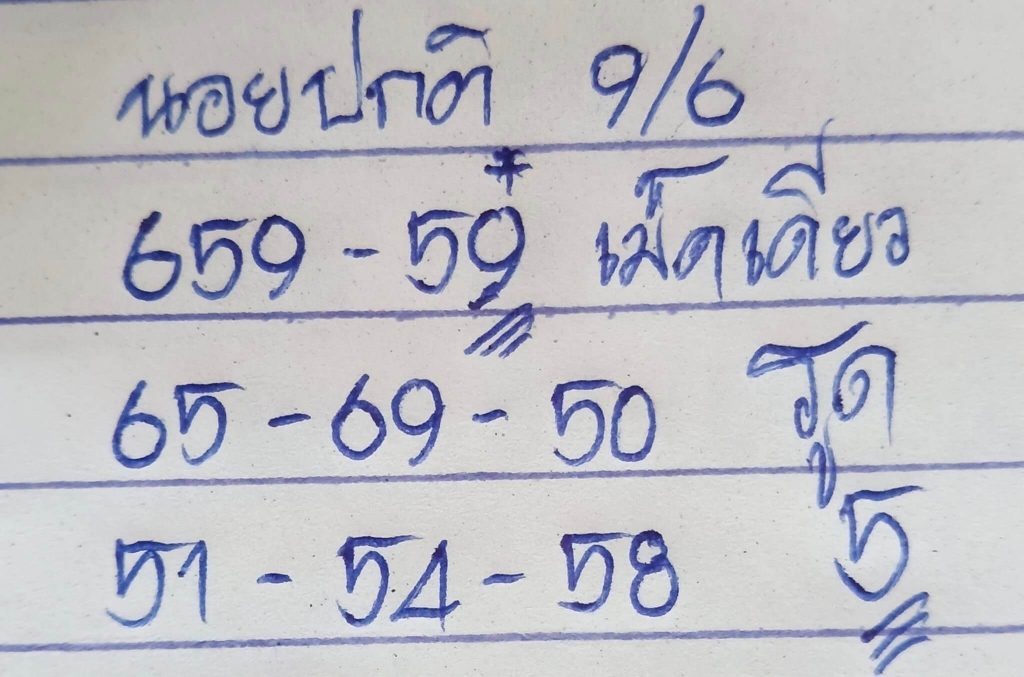 นอยปกติ 9/6
659 - 59* เม็ดเดียว
65 - 69 - 50 รูด
51 - 54 - 58 5